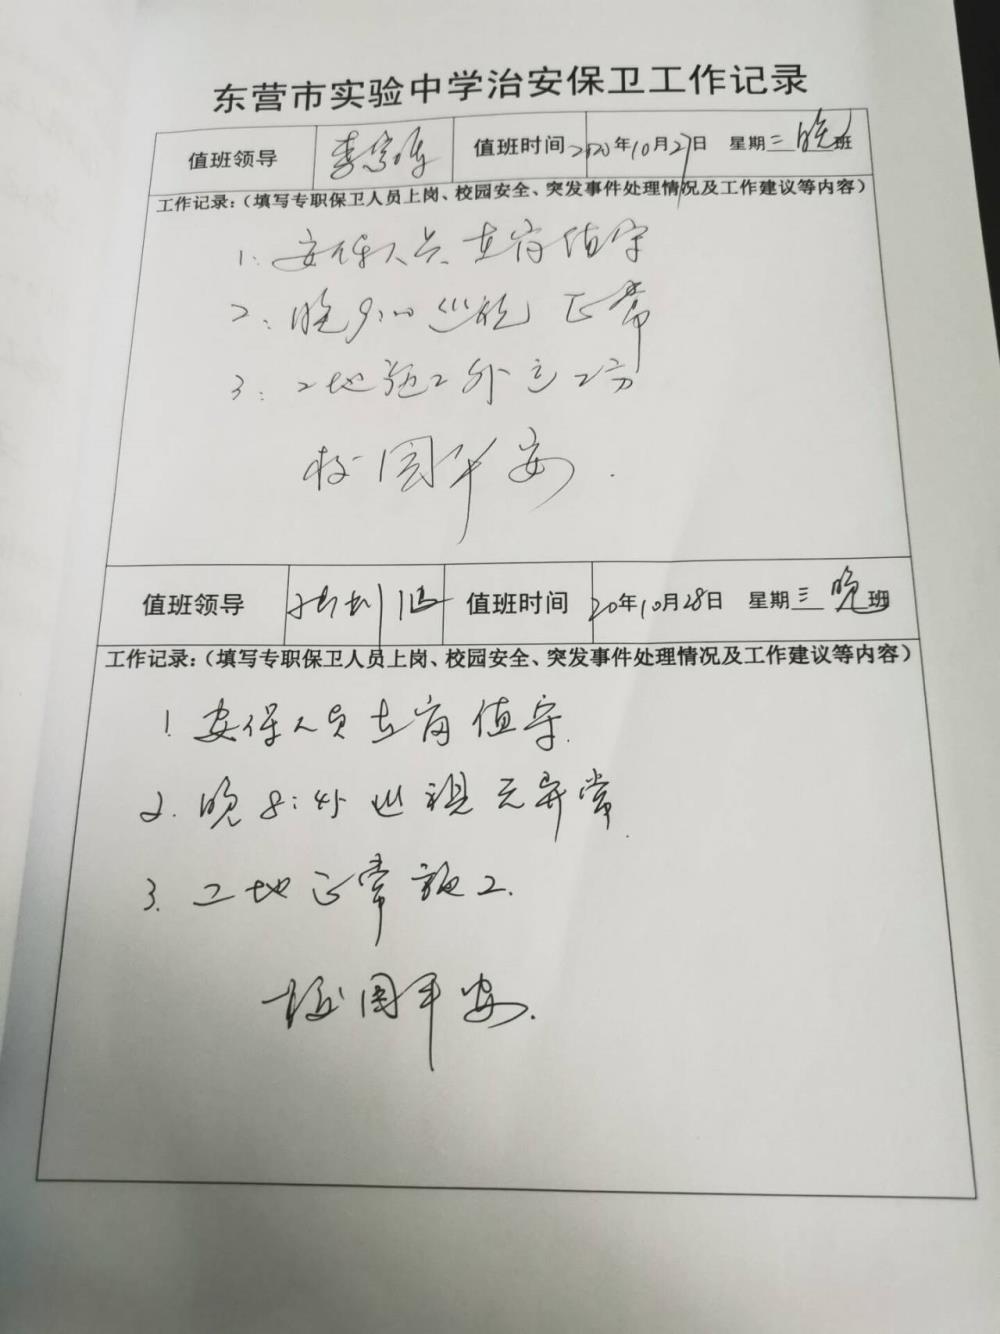 东营市实验中学治安保卫工作记录
值班领导 李 值班时间 2020年10月27日 星期二 晚班
工作记录:(填写专职保卫人员上岗、校园安全、突发事件处理情况及工作建议等内容)
1. 安保人员在岗值守
2. 晚9:00巡视正常
3. 工地施工外
校园平安.
值班领导 值班时间 20年10月28日 星期三 晚班
工作记录:(填写专职保卫人员上岗、校园安全、突发事件处理情况及工作建议等内容)
1 安保人员在岗值守.
2. 晚8:45巡视无异常.
3. 工地正常施工.
校园平安.